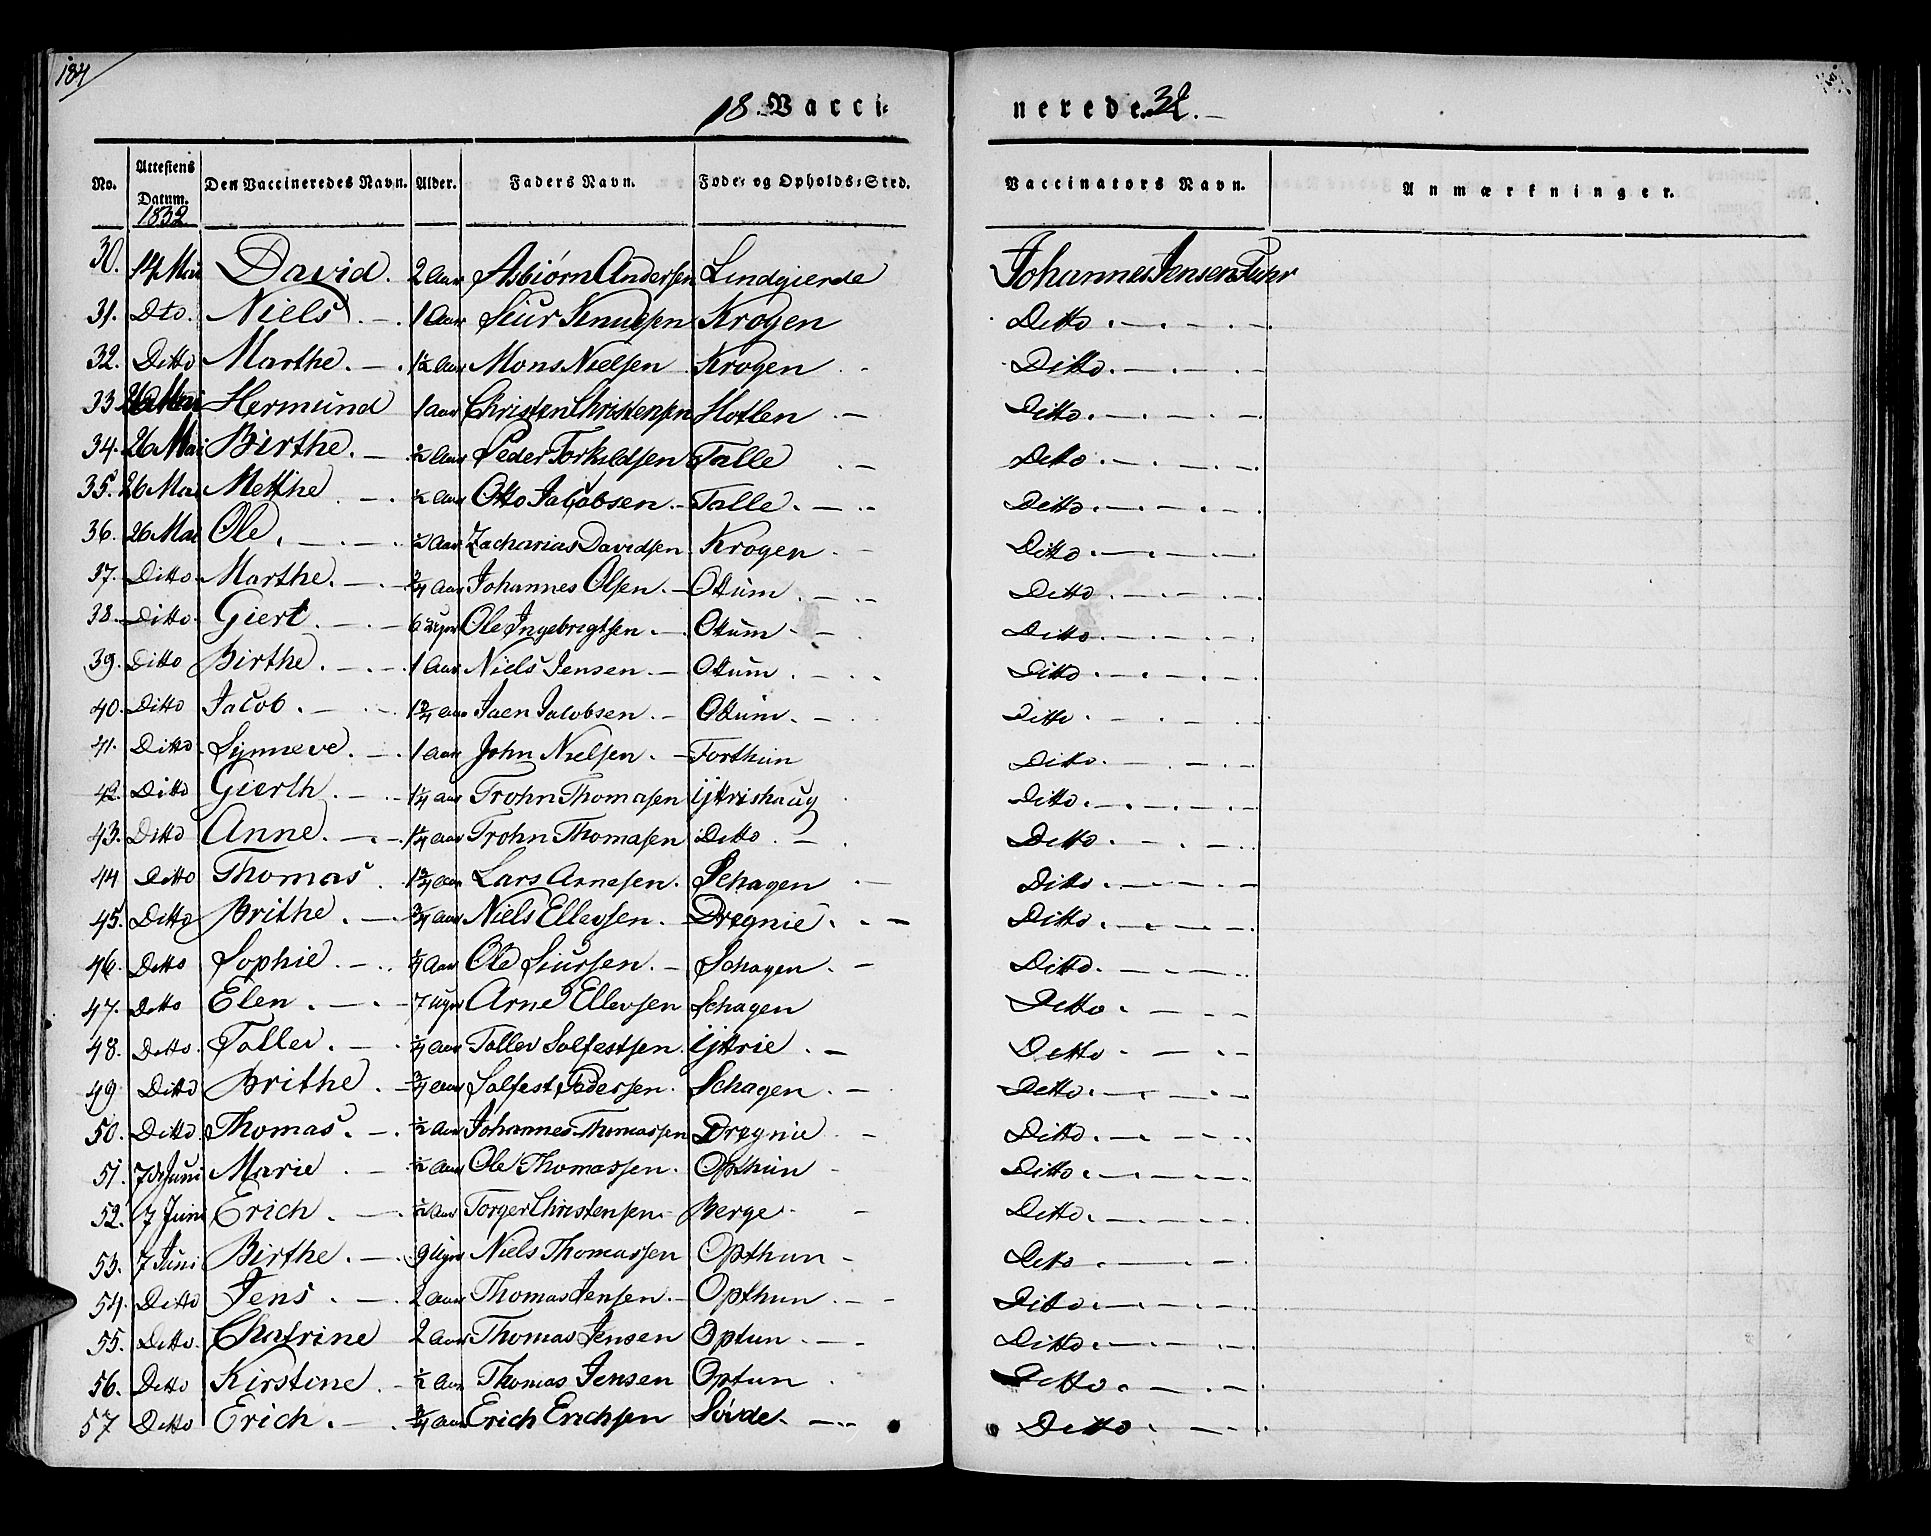 184
18 Vacci- nerede. 32.
No. Attestens Datum. Den Vaccineredes Navn. Alder. Faders Navn. Føde- og Opholds-Sted. Vaccinators Navn. Anmærkninger.
1832
30. 14 Mai David. 2 Aar Asbiørn Andersen Lindgierde Johannes Jensen
31. Dto. Niels 1 Aar Siur Knudsen Krogen Ditto
32. Ditto Marthe. 1½ Aar Mons Nielsen Krogen Ditto.
33 26 Mai Hermund 1 aar Christen Christensen Hotlen Ditto.
34. 26 Mai Birthe. ½ Aar Peder Torkildsen Talle Ditto
35. 26 Mai Metthe ½ Aar Otto Jacobsen. Talle. Ditto.
36. 26 Mai Ole. ½ Aar Zacharias Davidsen Krogen Ditto
37. Ditto Marthe. ¾ Aar Johannes Olsen. Ottum Ditto
38. Ditto. Giert. 6 Uger Ole Ingebrigtsen. Ottum Ditto
39. Ditto Birthe. 1 Aar Niels Jensen Ottum Ditto
40. Ditto Jacob. 1¾ Aar Jaen Jacobsen. Ottum. Ditto
41. Ditto. Synneve. 1 Aar John Nielsen. Forthun Ditto.
42. Ditto Gierth. 1¼ aar Trohn Thomasen ijttrishaug Ditto.
43. Ditto Anne. 1¼ Aar Trohn Thomasen Ditto. Ditto
44 Ditto Thomas. 1¾ Aar Lars Arnesen. Schagen Ditto.
45. Ditto Brithe. ¾ Aar Niels Ellevsen. Dregnie. Ditto
46. Ditto Sophie. ¼ Aar Ole Siursen. Schagen. Ditto.
47. Ditto Elen. 7 Uger Arne Ellevsen Schagen Ditto
48. Ditto. Tollev. ¼ Aar Tollev Solfestsen. ijttrie. Ditto
49 Ditto Brithe. ¾ Aar Solfest Pedersen. Schagen. Ditto.
50. Ditto. Thomas. ½ Aar Johannes Thomassen Dregnie Ditto.
51. 7de Juni Marie ½ Aar Ole Thomassen. Opthun Ditto
52. 7 Juni Erich. ½ Aar Torger Christensen. Berge Ditto.
53. 7 Juni Birthe. 9 Uger Niels Thomassen Opthun Ditto
54. Ditto Jens. 2 aar Thomas Jensen. Opthun. Ditto.
55. Ditto. Chatrine 2 Aar Thomas Jensen Optun Ditto.
56. Ditto Kirstine. ½ Aar Thomas Jensen Optun Ditto.
57 Ditto Erich. ¾ Aar Erich Erichsen Sørde. Ditto